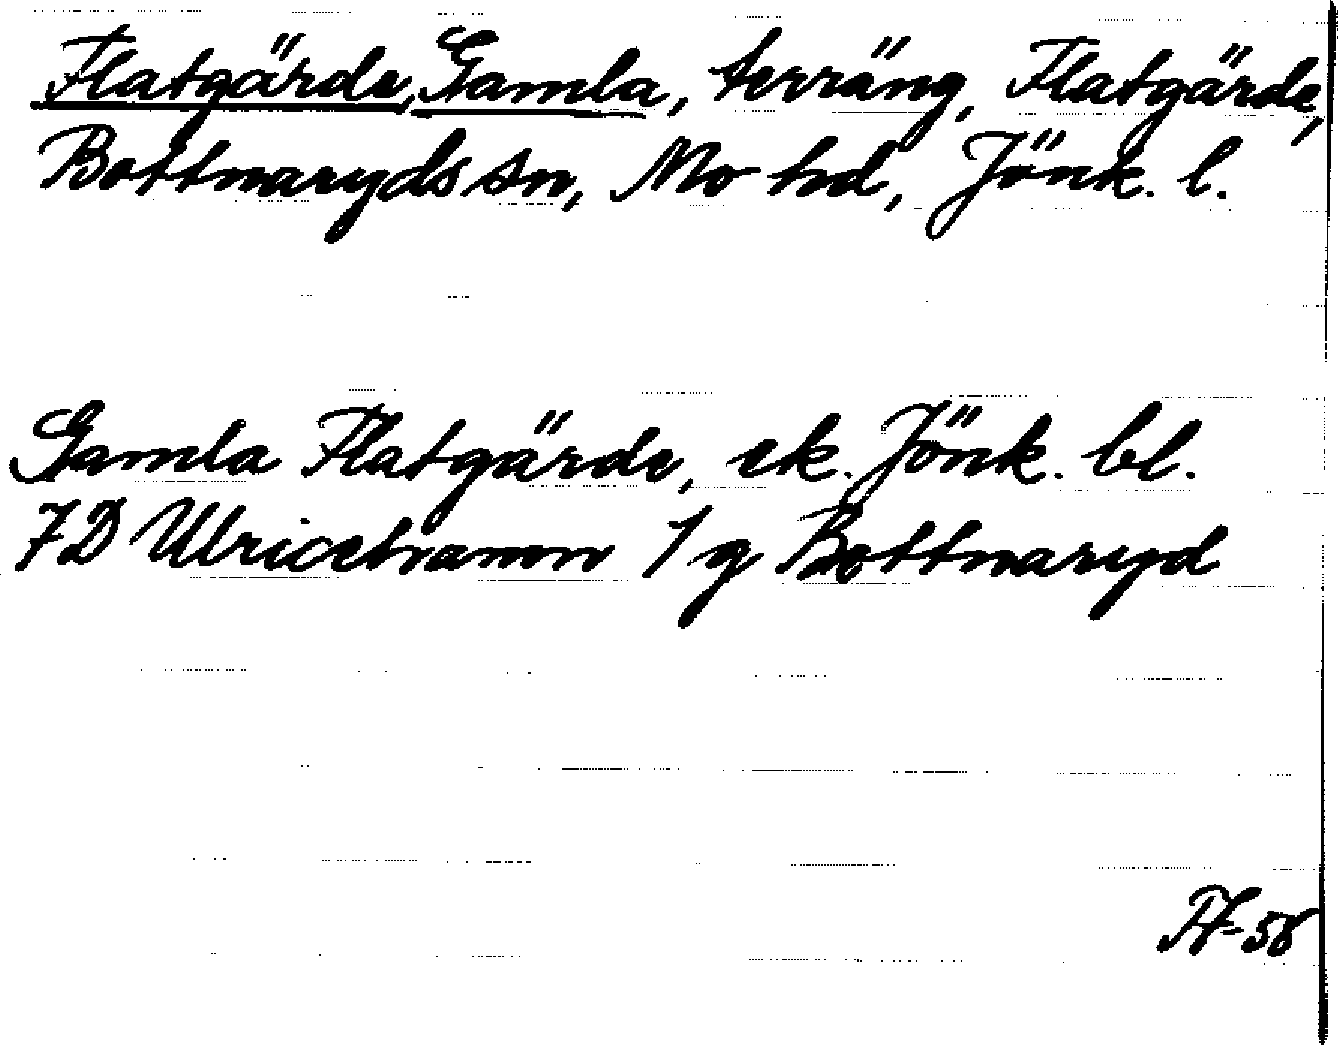 Flatgärde, Gamla, terräng, Flatgärde,
Bottnaryds sn, Mo hd, Jönk. l.
Gamla Flatgärde, ek. Jönk. bl.
7D Ulricehamn 1 g Bottnaryd
AF-58